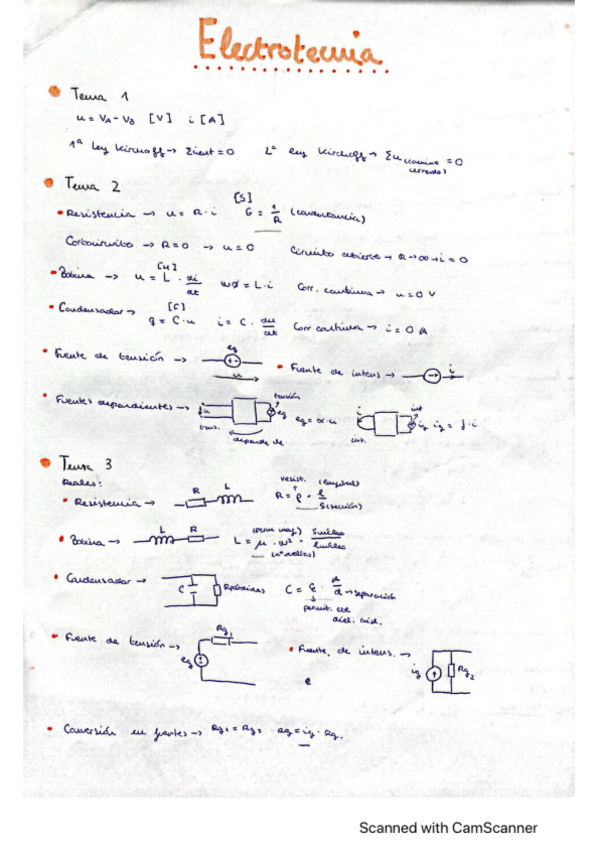 Electrotecnia
Tema 1
u = VA - VB [V] i [A]
1ª ley Kirchoff → Σient = 0 2ª ley Kirchoff → Σu (camino cerrado) = 0
Tema 2
Resistencia → u = R · i [S] G = 1/R (conductancia)
Cortocircuito → R = 0 → u = 0 Circuito abierto → R → ∞ → i = 0
Bobina → u = L [H] · di/dt Nø = L · i Corr. continua → u = 0 V
Condensador → [F] q = C · u i = C · du/dt Corr continua → i = 0 A
Fuente de tensión → eg u Fuente de intens → i
Fuentes dependientes → u tens. tensión eg eg = α · u depende de i int. int ig ig = f · i
Tema 3
Reales:
Resistencia → R L R = ρ · l/S resist. (longitud) (sección)
Bobina → L R L = μ · N² · (perm mag) (nº vueltas) Snúcleo/lnúcleo
Condensador → C Rpérdidas C = ε · /d → separación
permit.
diel.
Fuente de tensión → eg Rg1 Fuente de intens. → ig Rg2
e
Conversión en fuentes → Rg1 = Rg2 eg = ig · Rg.
Scanned with CamScanner